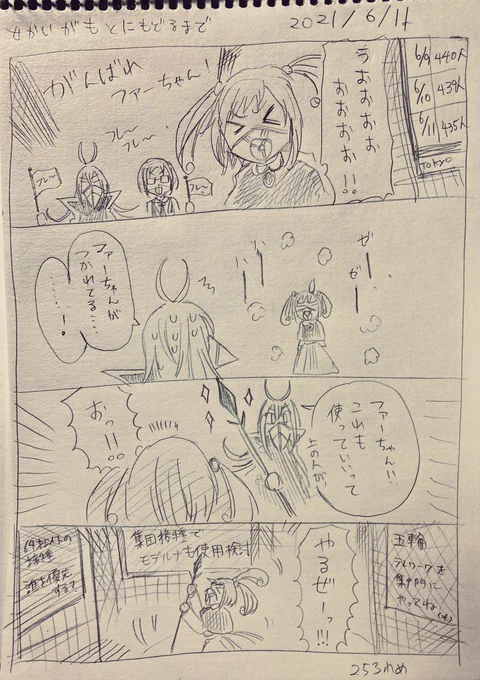 #かいがもとにもどるまで
2021/6/11
6/9 440人
6/10 439人
6/11 435人
TOKYO
うおおおお
おおおお!!
がんばれ
ファーちゃん!
フレ〜
フレ〜
フレ〜
フレ〜
ゼー
ゼー
ファーちゃんが
つかれてる……
……!
ファーちゃん!!
これも
使っていいって
上の人が!
おっ!!
五輪
テレワークを
集中的に
やってね
やるぜーっ!!!
集団接種で
モデルナも使用検討
64才以下の
接種
誰を優先
する?
253日め